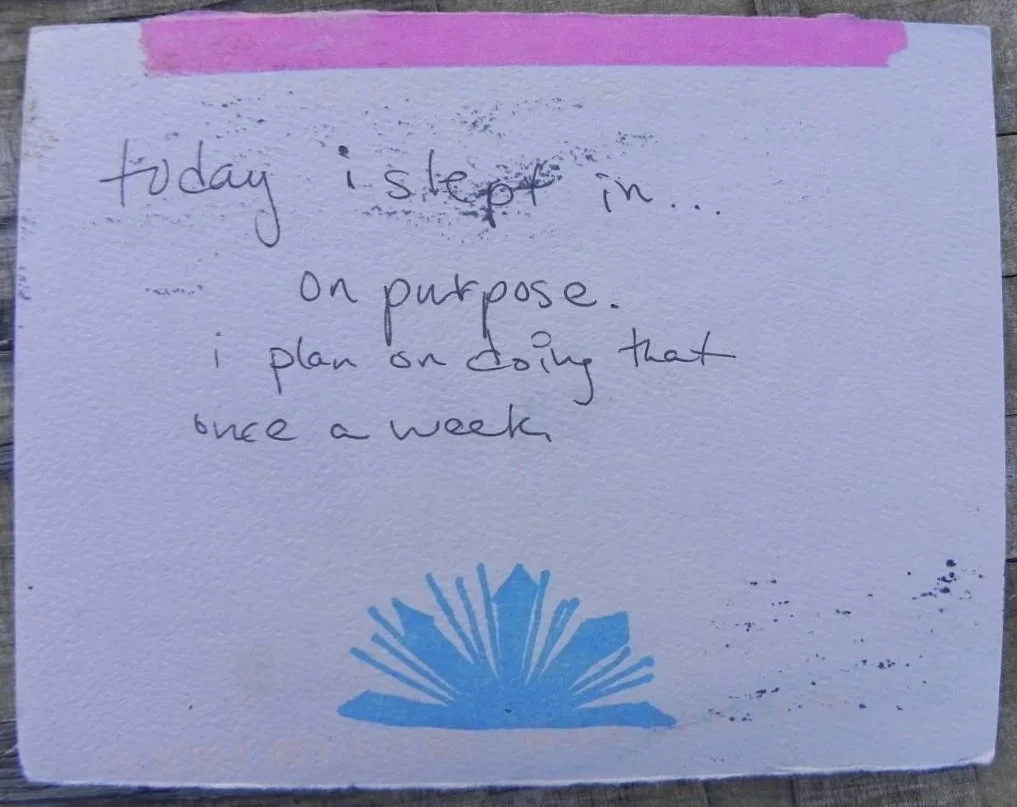 today i slept in...
on purpose.
i plan on doing that
once a week.